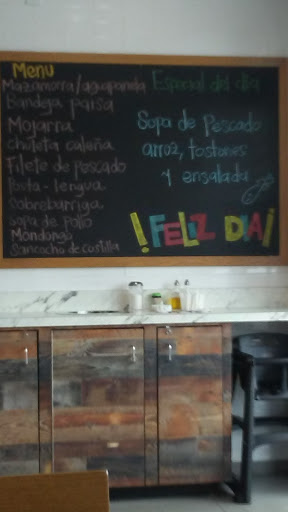 Menu
Mazamorra/aguapanela
Bandeja paisa
Mojarra
chuleta caleña
Filete de pescado
Posta - lengua
Sobrebarriga
Sopa de Pollo
Mondongo
Sancocho de costilla
Especial del dia
Sopa de Pescado
arroz, tostones
y ensalada
¡FELIZ DIA!